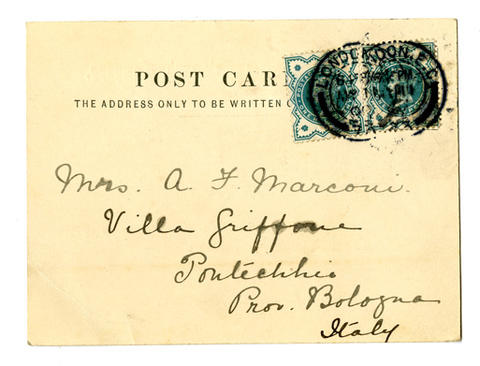 POST CAR
THE ADDRESS ONLY TO BE WRITTEN
LONDON. E.C.
Mrs. A. F. Marconi.
Villa Griffone
Pontecchio
Prov. Bologna
Italy